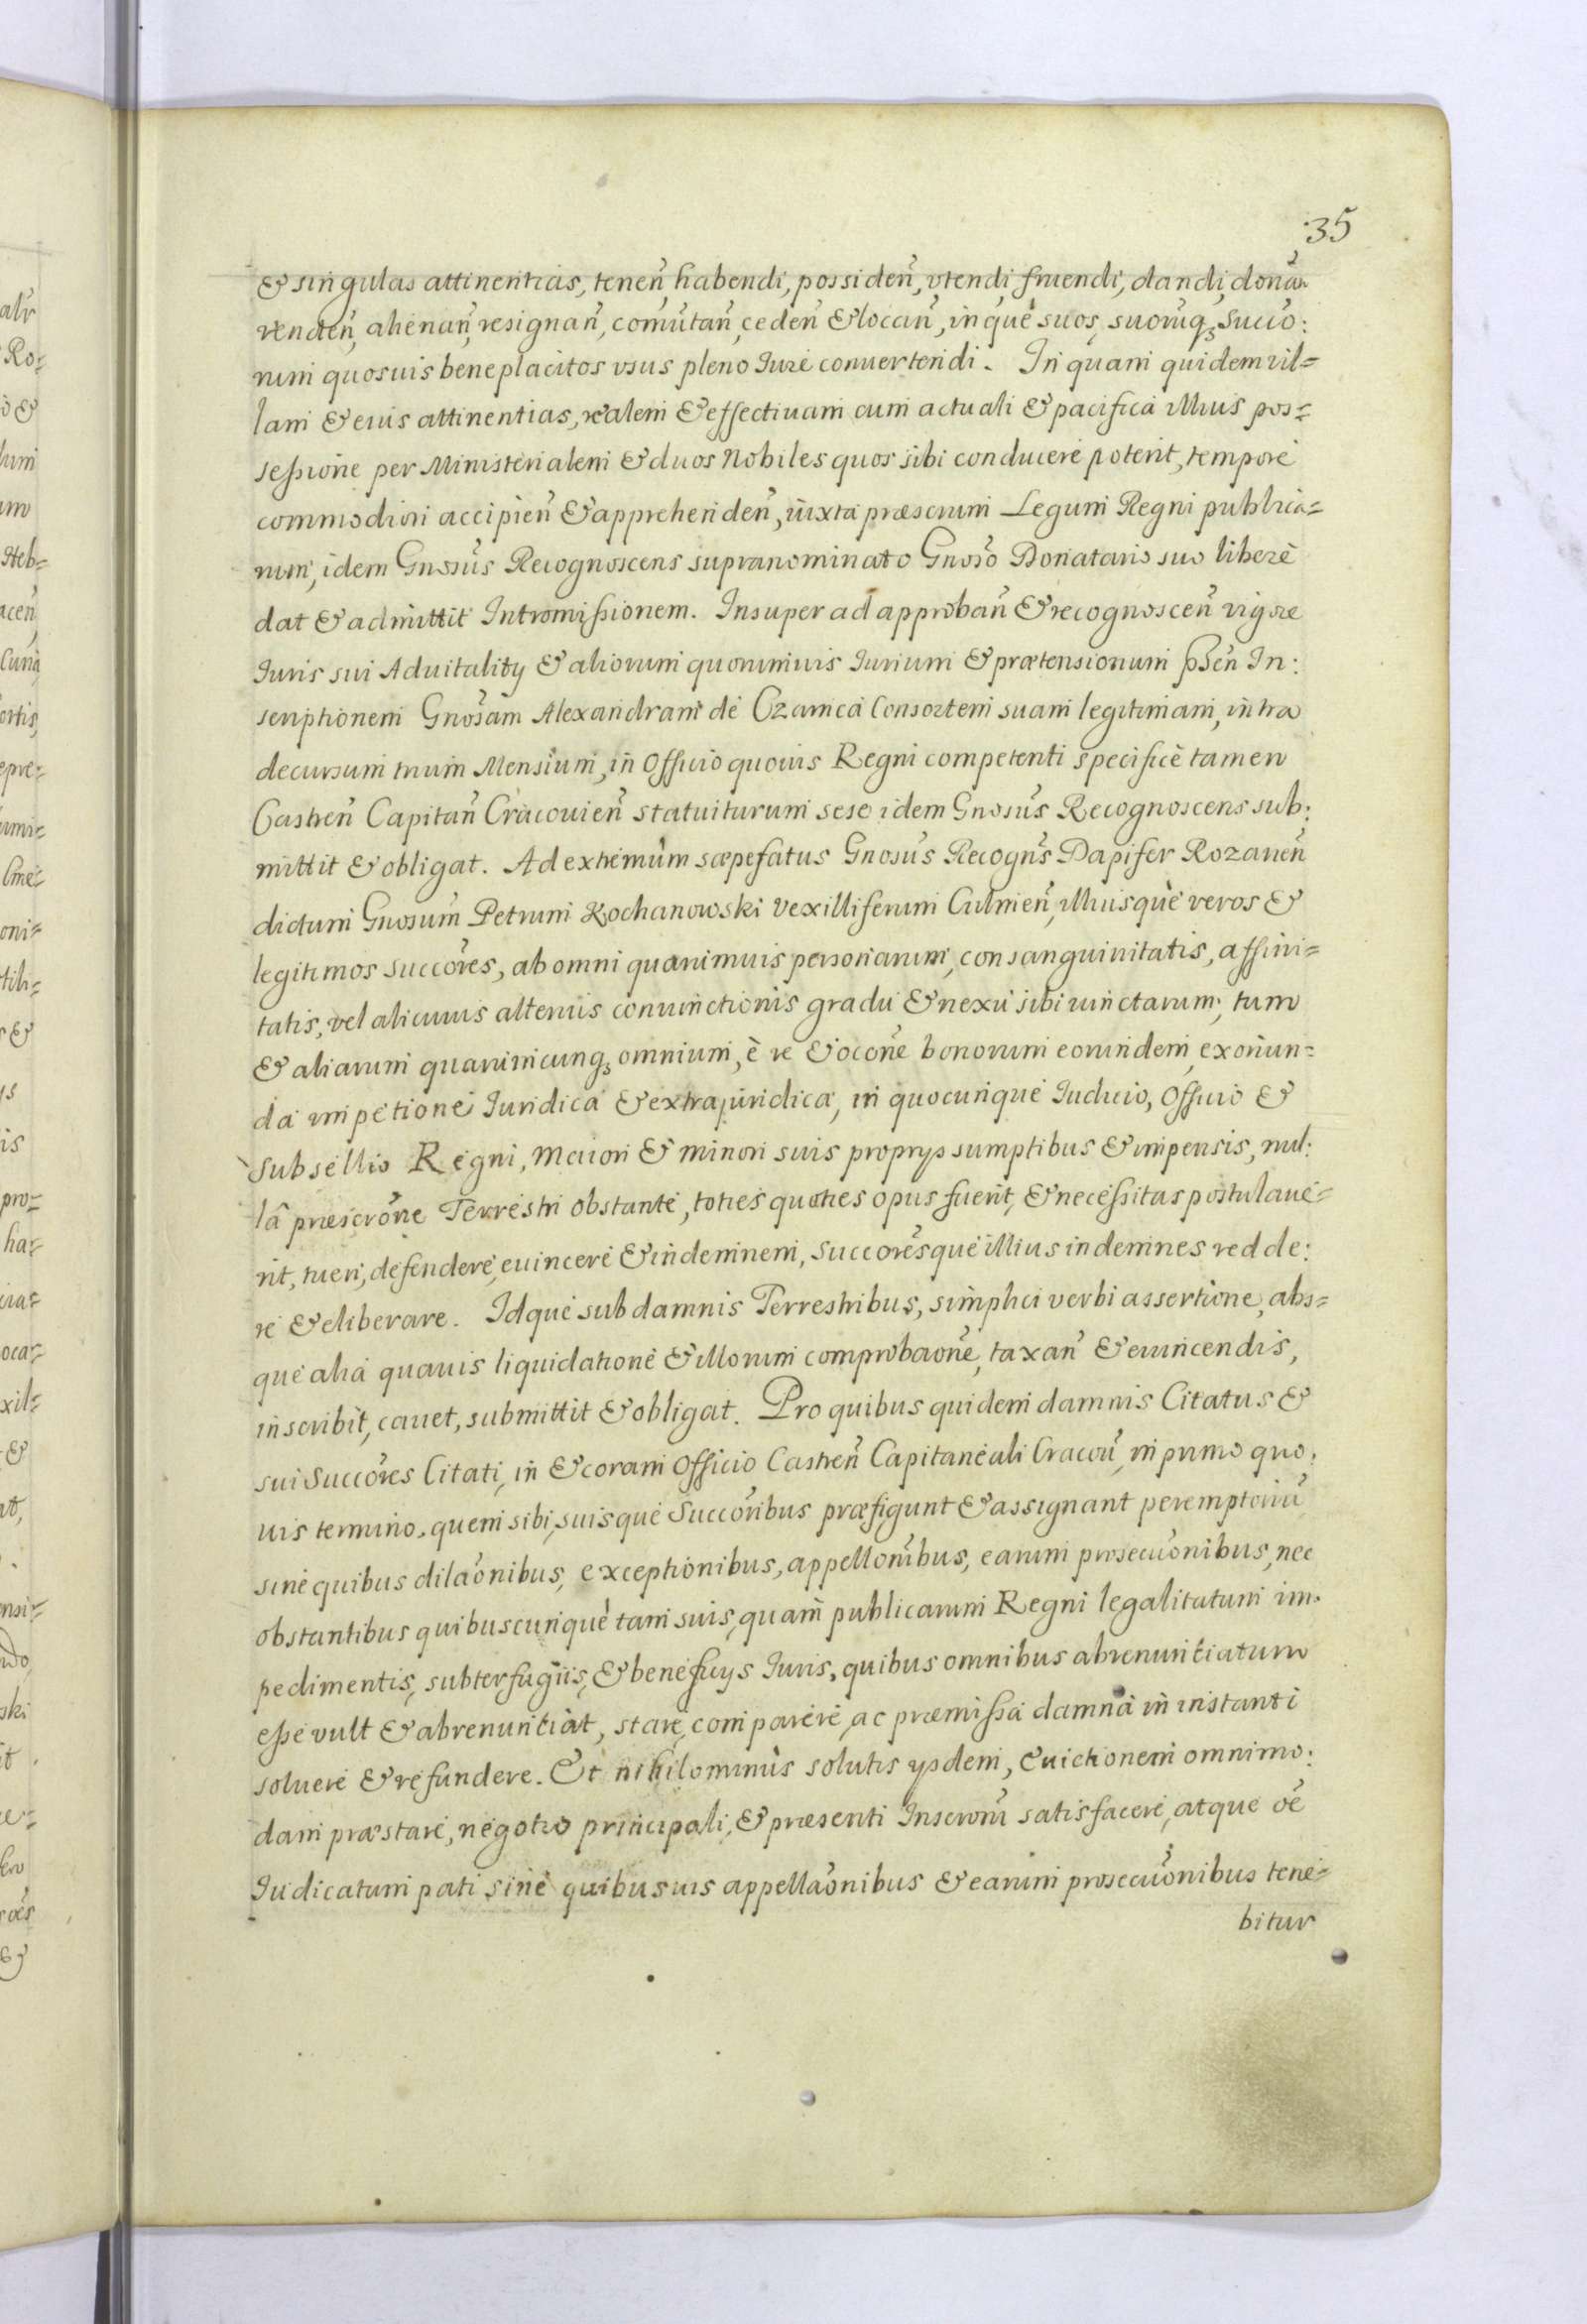 35
& singulas attinentias, tenen̄, habendi, possiden̄, vtendi fruendi, dandi, donan̄
venden̄, alienan̄, resignan̄, com̄utan̄, ceden̄ & locan̄, inque suos, suorūq₃ Succo:
rum quosuis beneplacitos vsus pleno Iure conuertendi. In quam quidem vil=
lam & eius attinentias, realem & effectiuam cum actuali & pacifica illius pos=
seßione per Ministerialem & duos Nobiles quos sibi conducere poterit, tempore
commodiori accipien̄ & apprehenden̄, iuxta præscrium Legum Regni publica=
rum, idem Gnosūs Recognoscens supranominato Gnosō Donatario suo liberè
dat & admittit Intromißionem. Insuper ad approban̄ & recognoscen̄ vigore
Iuris sui Aduitalitÿ & aliorum quorumuis Iurium & prætensionum pn̄sen̄ In:
scriptionem Gnosām Alexandram de Czarnca Consortem suam legitimam, intra
decursum trium Mensium, in Officio quouis Regni competenti specificè tamen
Castren̄ Capitan̄ Cracouien̄ statuiturum sese idem Gnosūs Recognoscens sub:
mittit & obligat. Ad extremùm sæpefatus Gnosūs Recogns̄ Dapifer Rozanen̄
dictum Gnosūm Petrum Kochanowski Vexilliferum Culmen̄, illiusquè veros &
legitimos succōres, ab omni quarumuis personarum, consanguinitatis, affini=
tatis, vel alicuius alterius coniunctionis gradu & nexu sibi iunctarum, tum
& aliarum quarumcunq₃ omnium, è re & occōne bonorum eorundem, exoriun=
da impetione Iuridica & extrajuridica, in quocunque Iudicio, Officio &
Subsellio Regni, maiori & minori suis proprÿs sumptibus & impensis, nul:
lâ præscrōne Terrestri obstante, toties quoties opus fuerit, & neceßitas postulaue=
rit, tueri, defendere, euincere & indemnem, succorēsque illius indemnes redde:
re & eliberare. Idque sub damnis Terrestribus, simplici verbi assertione, abs=
que alia quauis liquidatione & illorum comprobaōne, taxan̄ & euincendis,
inscribit, cauet, submittit & obligat. Pro quibus quidem damnis Citatus &
sui Succōres Citati, in & coram Officio Castren̄ Capitaneali Cracou̅, in primo quo:
uis termino, quem sibi, suisque Succoribus præfigunt & assignant peremptoriū
sine quibus dilaōnibus, exceptionibus, appellōnibus, earum prosecuōnibus, nec
obstantibus quibuscunquè tam suis, quam publicarum Regni legalitatum im.
pedimentis, subterfugiis, & beneficÿs Iuris, quibus omnibus abrenuntiatum
eße vult & abrenuntiat, stare, comparere, ac præmißa damna in instanti
soluere & refundere. Et nihilominùs solutis ÿsdem, euictionem omnimo:
dam præstare, negotio principali, & præsenti Inscrōni satisfacere, atque oē
Iudicatum pati sinè quibusuis appellaōnibus & earum prosecuōnibus tene=
bitur